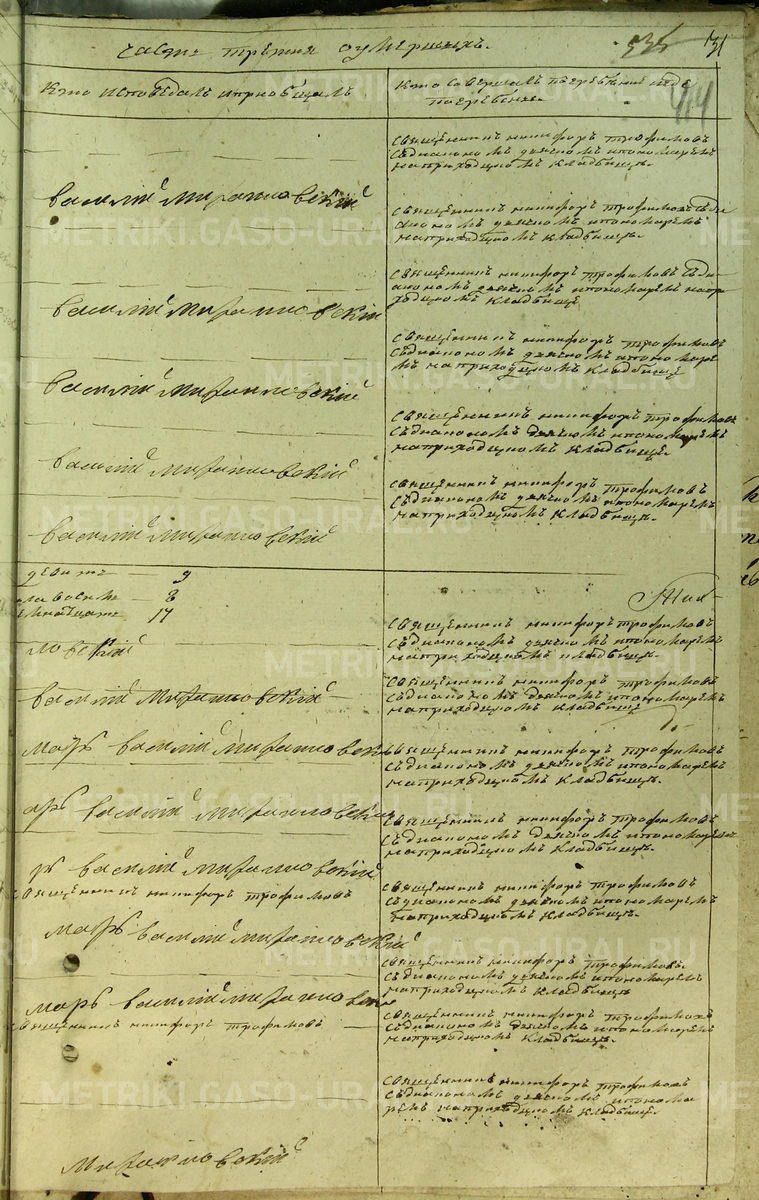 часть третия о умершихъ.
535
31
414
Кто исповедалъ и приобщалъ
Кто совершалъ погребение и где
погребены.
Священникъ никифоръ трофимовъ
Съдиакономъ дьячкомъ ипономаремъ
наприходцкомъ кладбище.
Василий Михайловский
Священникъ никифоръ трофимовъ Съди
акономъ дьячкомъ ипономаремъ
наприходцкомъ кладбище.
Священникъ никифоръ трофимовъ Съди
акономъ дьячкомъ ипономаремъ напри
ходцкомъ кладбище
Василий Михайловский
Священникъ никифоръ трофимовъ
Съдиакономъ дьячкомъ ипономаре
мъ наприходцкомъ кладбище
Василий Михайловский
Священникъ никифоръ трофимовъ
Съдиакономъ дьячкомъ ипономаремъ
наприходцкомъ кладбище.
Василий Михайловский
Священникъ никифоръ трофимовъ
Съдиакономъ дьячкомъ ипономаремъ
наприходцкомъ кладбище.
Василий Михайловский
девять 9
8
17
Священникъ никифоръ трофимовъ
Съдиакономъ дьячкомъ ипономаремъ
наприходцкомъ кладбище.
ловский
Священникъ никифоръ трофимовъ
Съдиакономъ дьячкомъ ипономаремъ
наприходцкомъ кладбище
Василий Михайловский
Священникъ никифоръ трофимовъ
Съдиакономъ дьячкомъ ипономаремъ
наприходцкомъ кладбище.
марь Василий Михайловский
Священникъ никифоръ трофимовъ
Съдиакономъ дьячкомъ ипономаремъ
наприходцкомъ кладбище.
арь Василий Михайловский
рь Василий Михайловский
Священникъ никифоръ трофимовъ
Священникъ никифоръ трофимовъ
Съдиакономъ дьячкомъ ипономаремъ
наприходцкомъ кладбище.
марь Василий Михайловский
Священникъ никифоръ трофимовъ
Съдиакономъ дьячкомъ ипономаремъ
наприходцкомъ кладбище
марь Василий Михайловский
Священникъ никифоръ трофимовъ
Священникъ никифоръ трофимовъ
Съдиакономъ дьячкомъ ипономаремъ
наприходцкомъ кладбище.
Священникъ никифоръ трофимовъ
Съдиакономъ дьячкомъ ипонома
ремъ наприходцкомъ кладбище
Михайловский
METRIKI.GASO-URAL.RU